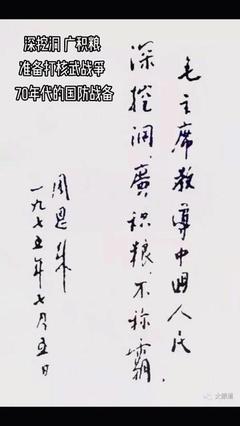 深挖洞 广积粮
准备打核武战爭
70年代的国防战备
毛主席教导中国人民
深挖洞，廣积粮，不称霸。
周恩来
一九七五年七月五日